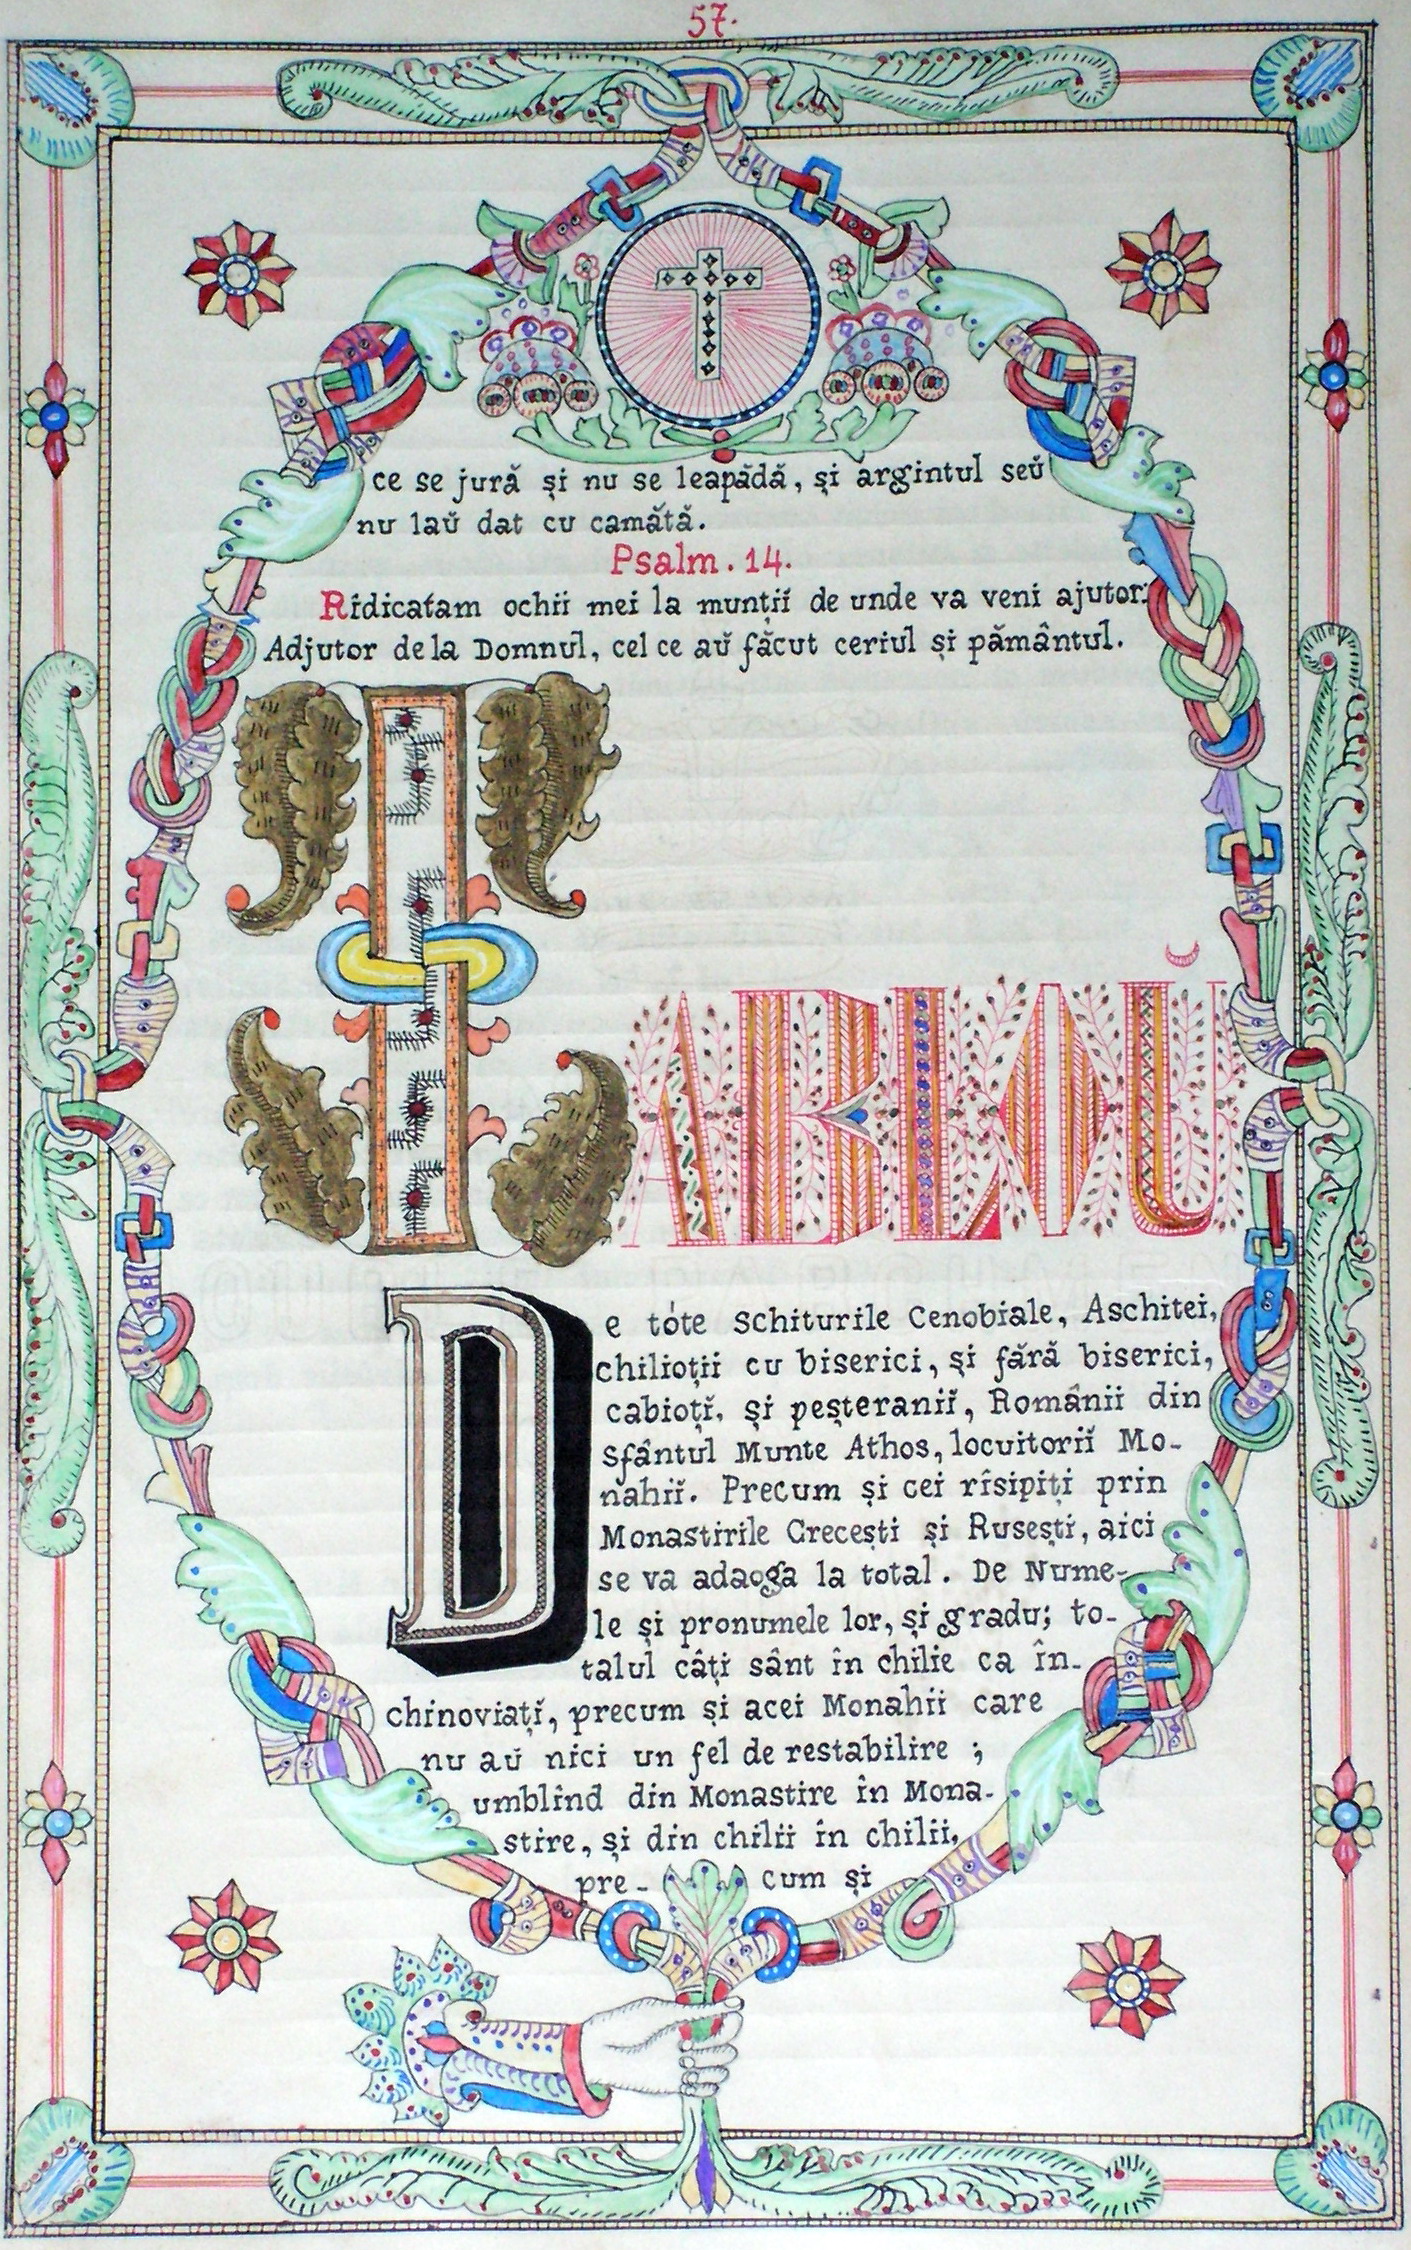 57.
ce se jură și nu se leapădă, și argintul seŭ
nu laŭ dat cu camătă.
Psalm. 14.
Rîdicatam ochii mei la munțiĭ de unde va veni ajutor:
Adjutor dela Domnul, cel ce aŭ făcut ceriul și pământul.
TABLOŬ
De tóte Schiturile Cenobiale, Aschitei,
chilioții cu biserici, și fără biserici,
cabioțĭ, și peșteraniĭ, Românii din
sfântul Munte Athos, locuitoriĭ Mo-
nahiĭ. Precum și cei rîsipiți prin
Monastirile Grecești și Rusești, aici
se va adaoga la total. De Nume-
le și pronumele lor, și gradu; to-
talul câți sânt în chilie ca în-
chinoviațĭ, precum și acei Monahii care
nu aŭ nici un fel de restabilire ;
umblînd din Monastire în Mona-
stire, și din chilii în chilii,
pre - cum și